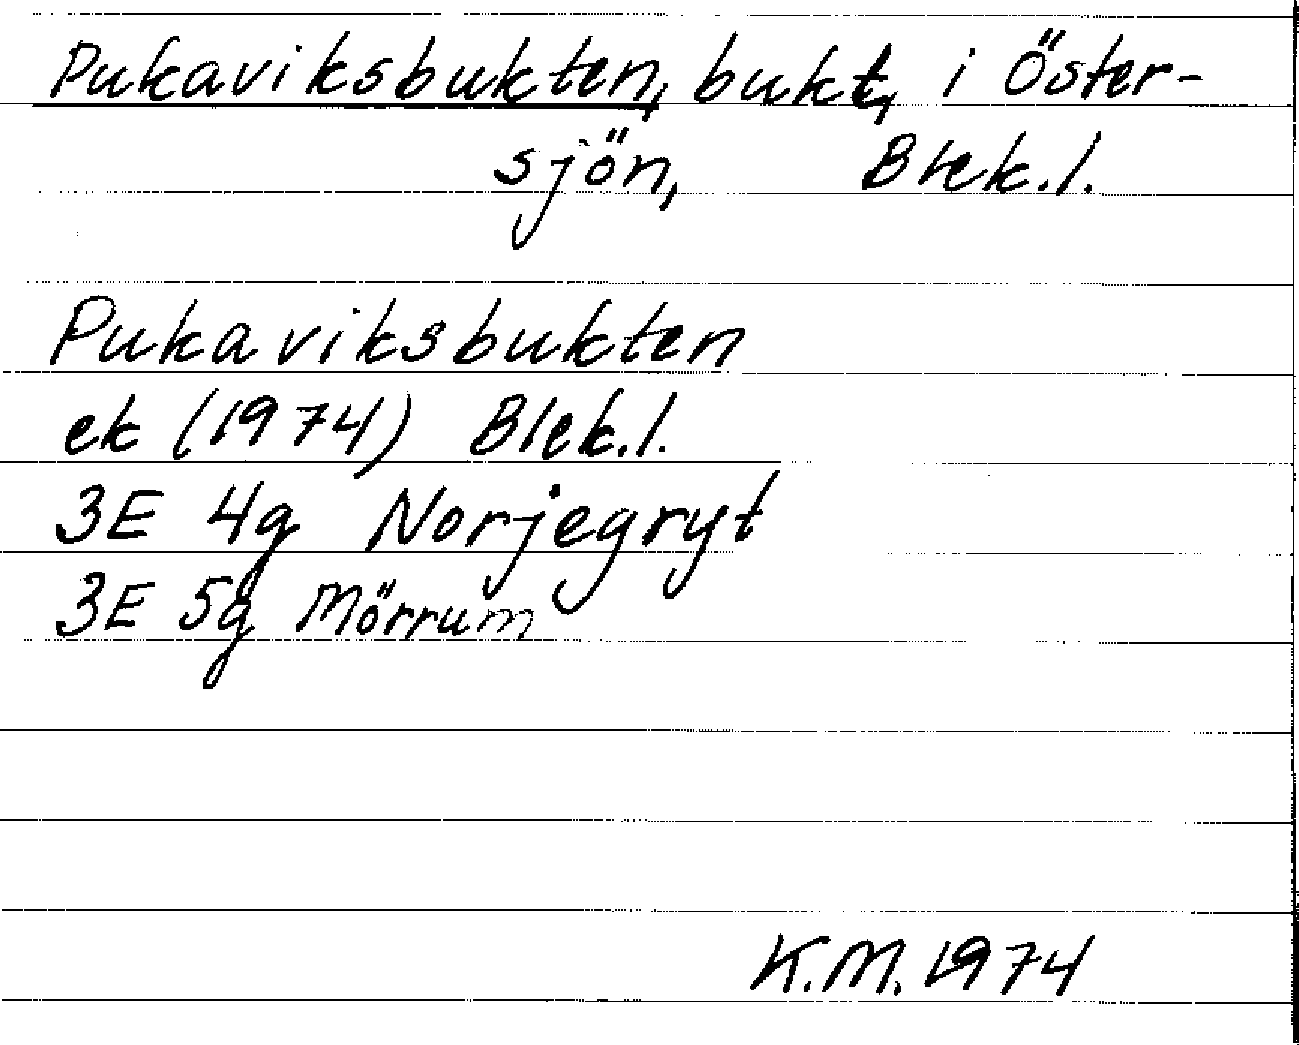 Pukaviksbukten, bukt, i Öster-
sjön, Blek.l.
Pukaviksbukten
ek (1974) Blek.l.
3E 4g Norjegryt
3E 5g Mörrum
K.M. 1974